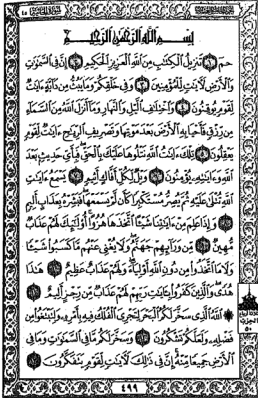 بِسْمِ اللَّهِ الرَّحْمَٰنِ الرَّحِيمِ
حمٓ ١ تَنزِيلُ الْكِتَابِ مِنَ اللَّهِ الْعَزِيزِ الْحَكِيمِ ٢ إِنَّ فِي السَّمَاوَاتِ
وَالْأَرْضِ لَآيَاتٍ لِّلْمُؤْمِنِينَ ٣ وَفِي خَلْقِكُمْ وَمَا يَبُثُّ مِن دَابَّةٍ آيَاتٌ
لِّقَوْمٍ يُوقِنُونَ ٤ وَاخْتِلَافِ اللَّيْلِ وَالنَّهَارِ وَمَا أَنزَلَ اللَّهُ مِنَ السَّمَاءِ
مِن رِّزْقٍ فَأَحْيَا بِهِ الْأَرْضَ بَعْدَ مَوْتِهَا وَتَصْرِيفِ الرِّيَاحِ آيَاتٌ لِّقَوْمٍ
يَعْقِلُونَ ٥ تِلْكَ آيَاتُ اللَّهِ نَتْلُوهَا عَلَيْكَ بِالْحَقِّ فَبِأَيِّ حَدِيثٍ بَعْدَ
اللَّهِ وَآيَاتِهِ يُؤْمِنُونَ ٦ وَيْلٌ لِّكُلِّ أَفَّاكٍ أَثِيمٍ ٧ يَسْمَعُ آيَاتِ
اللَّهِ تُتْلَىٰ عَلَيْهِ ثُمَّ يُصِرُّ مُسْتَكْبِرًا كَأَن لَّمْ يَسْمَعْهَا فَبَشِّرْهُ بِعَذَابٍ أَلِيمٍ
٨ وَإِذَا عَلِمَ مِنْ آيَاتِنَا شَيْئًا اتَّخَذَهَا هُزُوًا أُولَٰئِكَ لَهُمْ عَذَابٌ
مُّهِينٌ ٩ مِّن وَرَائِهِمْ جَهَنَّمُ وَلَا يُغْنِي عَنْهُم مَّا كَسَبُوا شَيْئًا
وَلَا مَا اتَّخَذُوا مِن دُونِ اللَّهِ أَوْلِيَاءَ وَلَهُمْ عَذَابٌ عَظِيمٌ ١٠ هَٰذَا
هُدًى وَالَّذِينَ كَفَرُوا بِآيَاتِ رَبِّهِمْ لَهُمْ عَذَابٌ مِّن رِّجْزٍ أَلِيمٌ ١١
اللَّهُ الَّذِي سَخَّرَ لَكُمُ الْبَحْرَ لِتَجْرِيَ الْفُلْكُ فِيهِ بِأَمْرِهِ وَلِتَبْتَغُوا مِن
فَضْلِهِ وَلَعَلَّكُمْ تَشْكُرُونَ ١٢ وَسَخَّرَ لَكُم مَّا فِي السَّمَاوَاتِ وَمَا فِي
الْأَرْضِ جَمِيعًا مِّنْهُ إِنَّ فِي ذَٰلِكَ لَآيَاتٍ لِّقَوْمٍ يَتَفَكَّرُونَ ١٣
٤٩٩